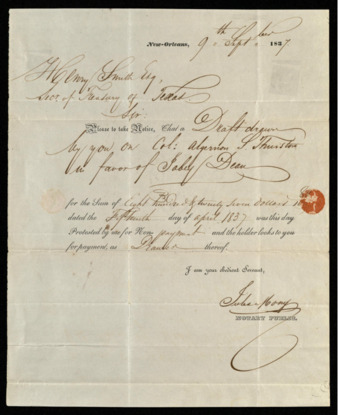 New-Orleans, 9th Sept ber 1837
Henry Smith Esq.
Secy of Treasury of Texas
Sir
Please to take Notice, That a Draft drawn
by you on Col: Algernon S Thruston
in favor of Jabez Deen
for the Sum of Eight hundred & twenty seven Dollars
dated the day of April 1837 was this day
Protested by me for Non payment and the holder looks to you
for payment, as thereof.
I am your obedient Servant,
NOTARY PUBLIC.